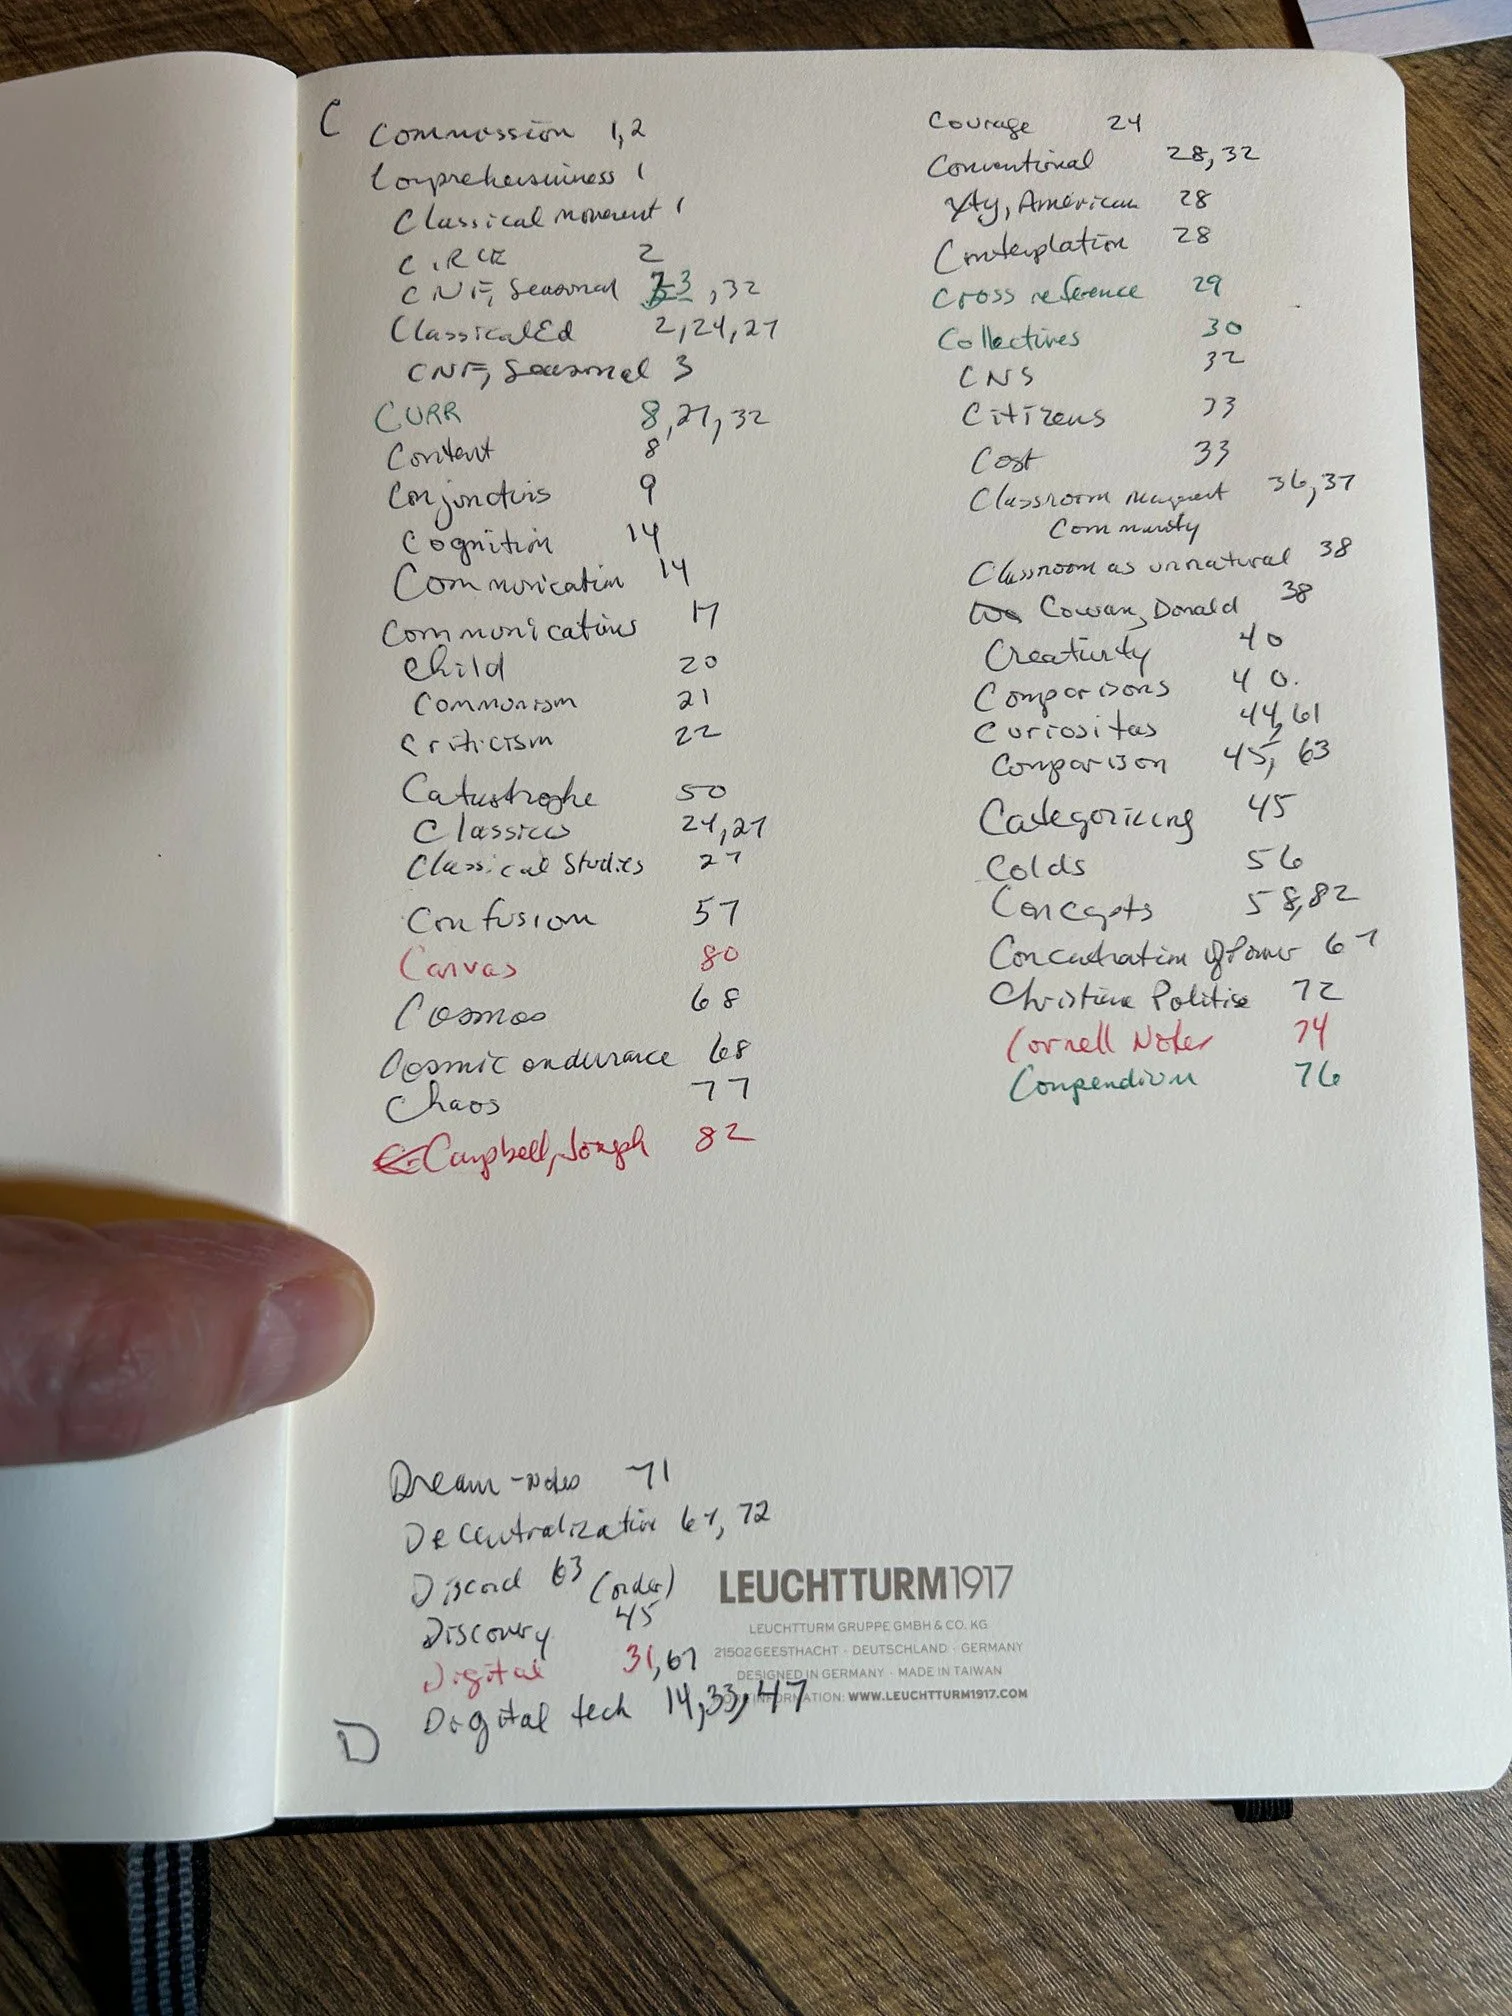 C
Commission 1,2
Comprehensiveness 1
Classical movement 1
CiRCE 2
CNF, Seasonal 3, 32
Classical Ed 2,24,27
CNF, Seasonal 3
CURR 8,27,32
Content 8
Conjunctions 9
Cognition 14
Communication 14
Communications 17
Child 20
Communism 21
Criticism 22
Catastrophe 50
Classics 24,27
Classical Studies 27
Confusion 57
Canvas 80
Cosmos 68
Cosmic endurance 68
Chaos 77
Campbell, Joseph 82
Courage 24
Conventional 28,32
Xty, American 28
Contemplation 28
Cross reference 29
Collectives 30
CNS 32
Citizens 33
Cost 33
Classroom 36,37
Community
Classroom as unnatural 38
Cowan, Donald 38
Creativity 40
Comparisons 40.
Curiositas 44,61
Comparison 45, 63
Categorizing 45
Colds 56
Concepts 58,82
Concentration of Power 67
Christian Politics 72
Cornell Notes 74
Compendium 76
Dream-notes 71
Decentralization 67, 72
Discord 63 (order)
Discovery 45
Digital 31,67
Digital tech 14,33,47
D
LEUCHTTURM1917
LEUCHTTURM GRUPPE GMBH & CO. KG
21502 GEESTHACHT · DEUTSCHLAND · GERMANY
DESIGNED IN GERMANY · MADE IN TAIWAN
INFORMATION: WWW.LEUCHTTURM1917.COM